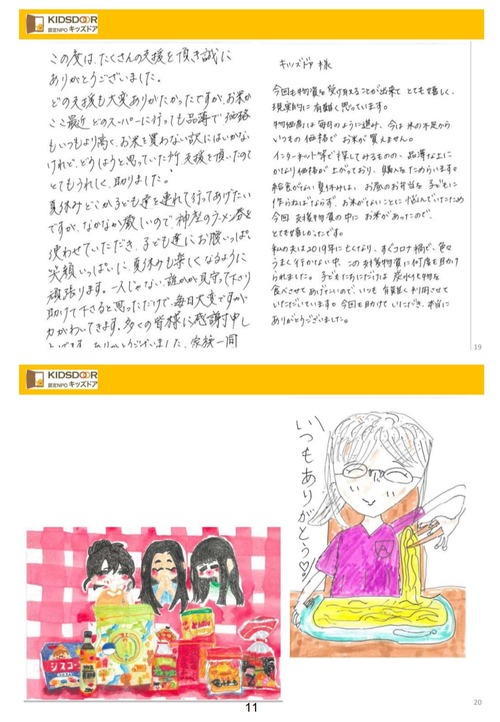 KIDSDOOR
認定NPO キッズドア
この度は、たくさんの支援を頂き誠に
ありがとうございました。
どの支援も大変ありがたかったですが、お米が
ここ最近どのスーパーに行っても品薄で価格
もいつもより高く、お米を買わない訳にはいかない
けれど、どうしようと思っていた所支援を頂いたので
とてもうれしく、助りました。
夏休みどこか子ども達を連れて行ってあげたい
ですが、なかなか難しいので、神座のラーメン券を
使わせていただき、子ども達にお腹いっぱい
笑顔いっぱいに、夏休みも楽しくなるように
頑張ります。一人じゃない誰かが見守って下さり
助けて下さると思っただけで、毎日大変ですが
力がわいてきます。多くの皆様に感謝申し
ありがとうございました。家族一同
キッズドア 様
今回も物資を受け取ることが出来て とても嬉しく、
現実的に有難く思っています。
物価高は毎日のように進み、今は米の不足から
いつもの価格で お米が買えません。
インターネット等で探してみるものの、品薄な上に
かなり価格が上がっており、購入をためらいます。
給食がない夏休みは、お昼のお弁当を子どもに
作らねばならず、お米がないことに悩んでいたため
今回支援物資の中に お米があったので、
とても嬉しかったです。
私の夫は2019年に亡くなり、すぐコロナ禍で、色々
うまく行かない中、この対象物資に何度も助け
られました。子どもたちにだけは 炭水化物を
食べさせてあげたいので、いつも有難く利用させて
いただいています。今回も助けていただき、本当に
ありがとうございました。
19
KIDSDOOR
認定NPO キッズドア
いつもありがとう♡
シスコーン
11
20